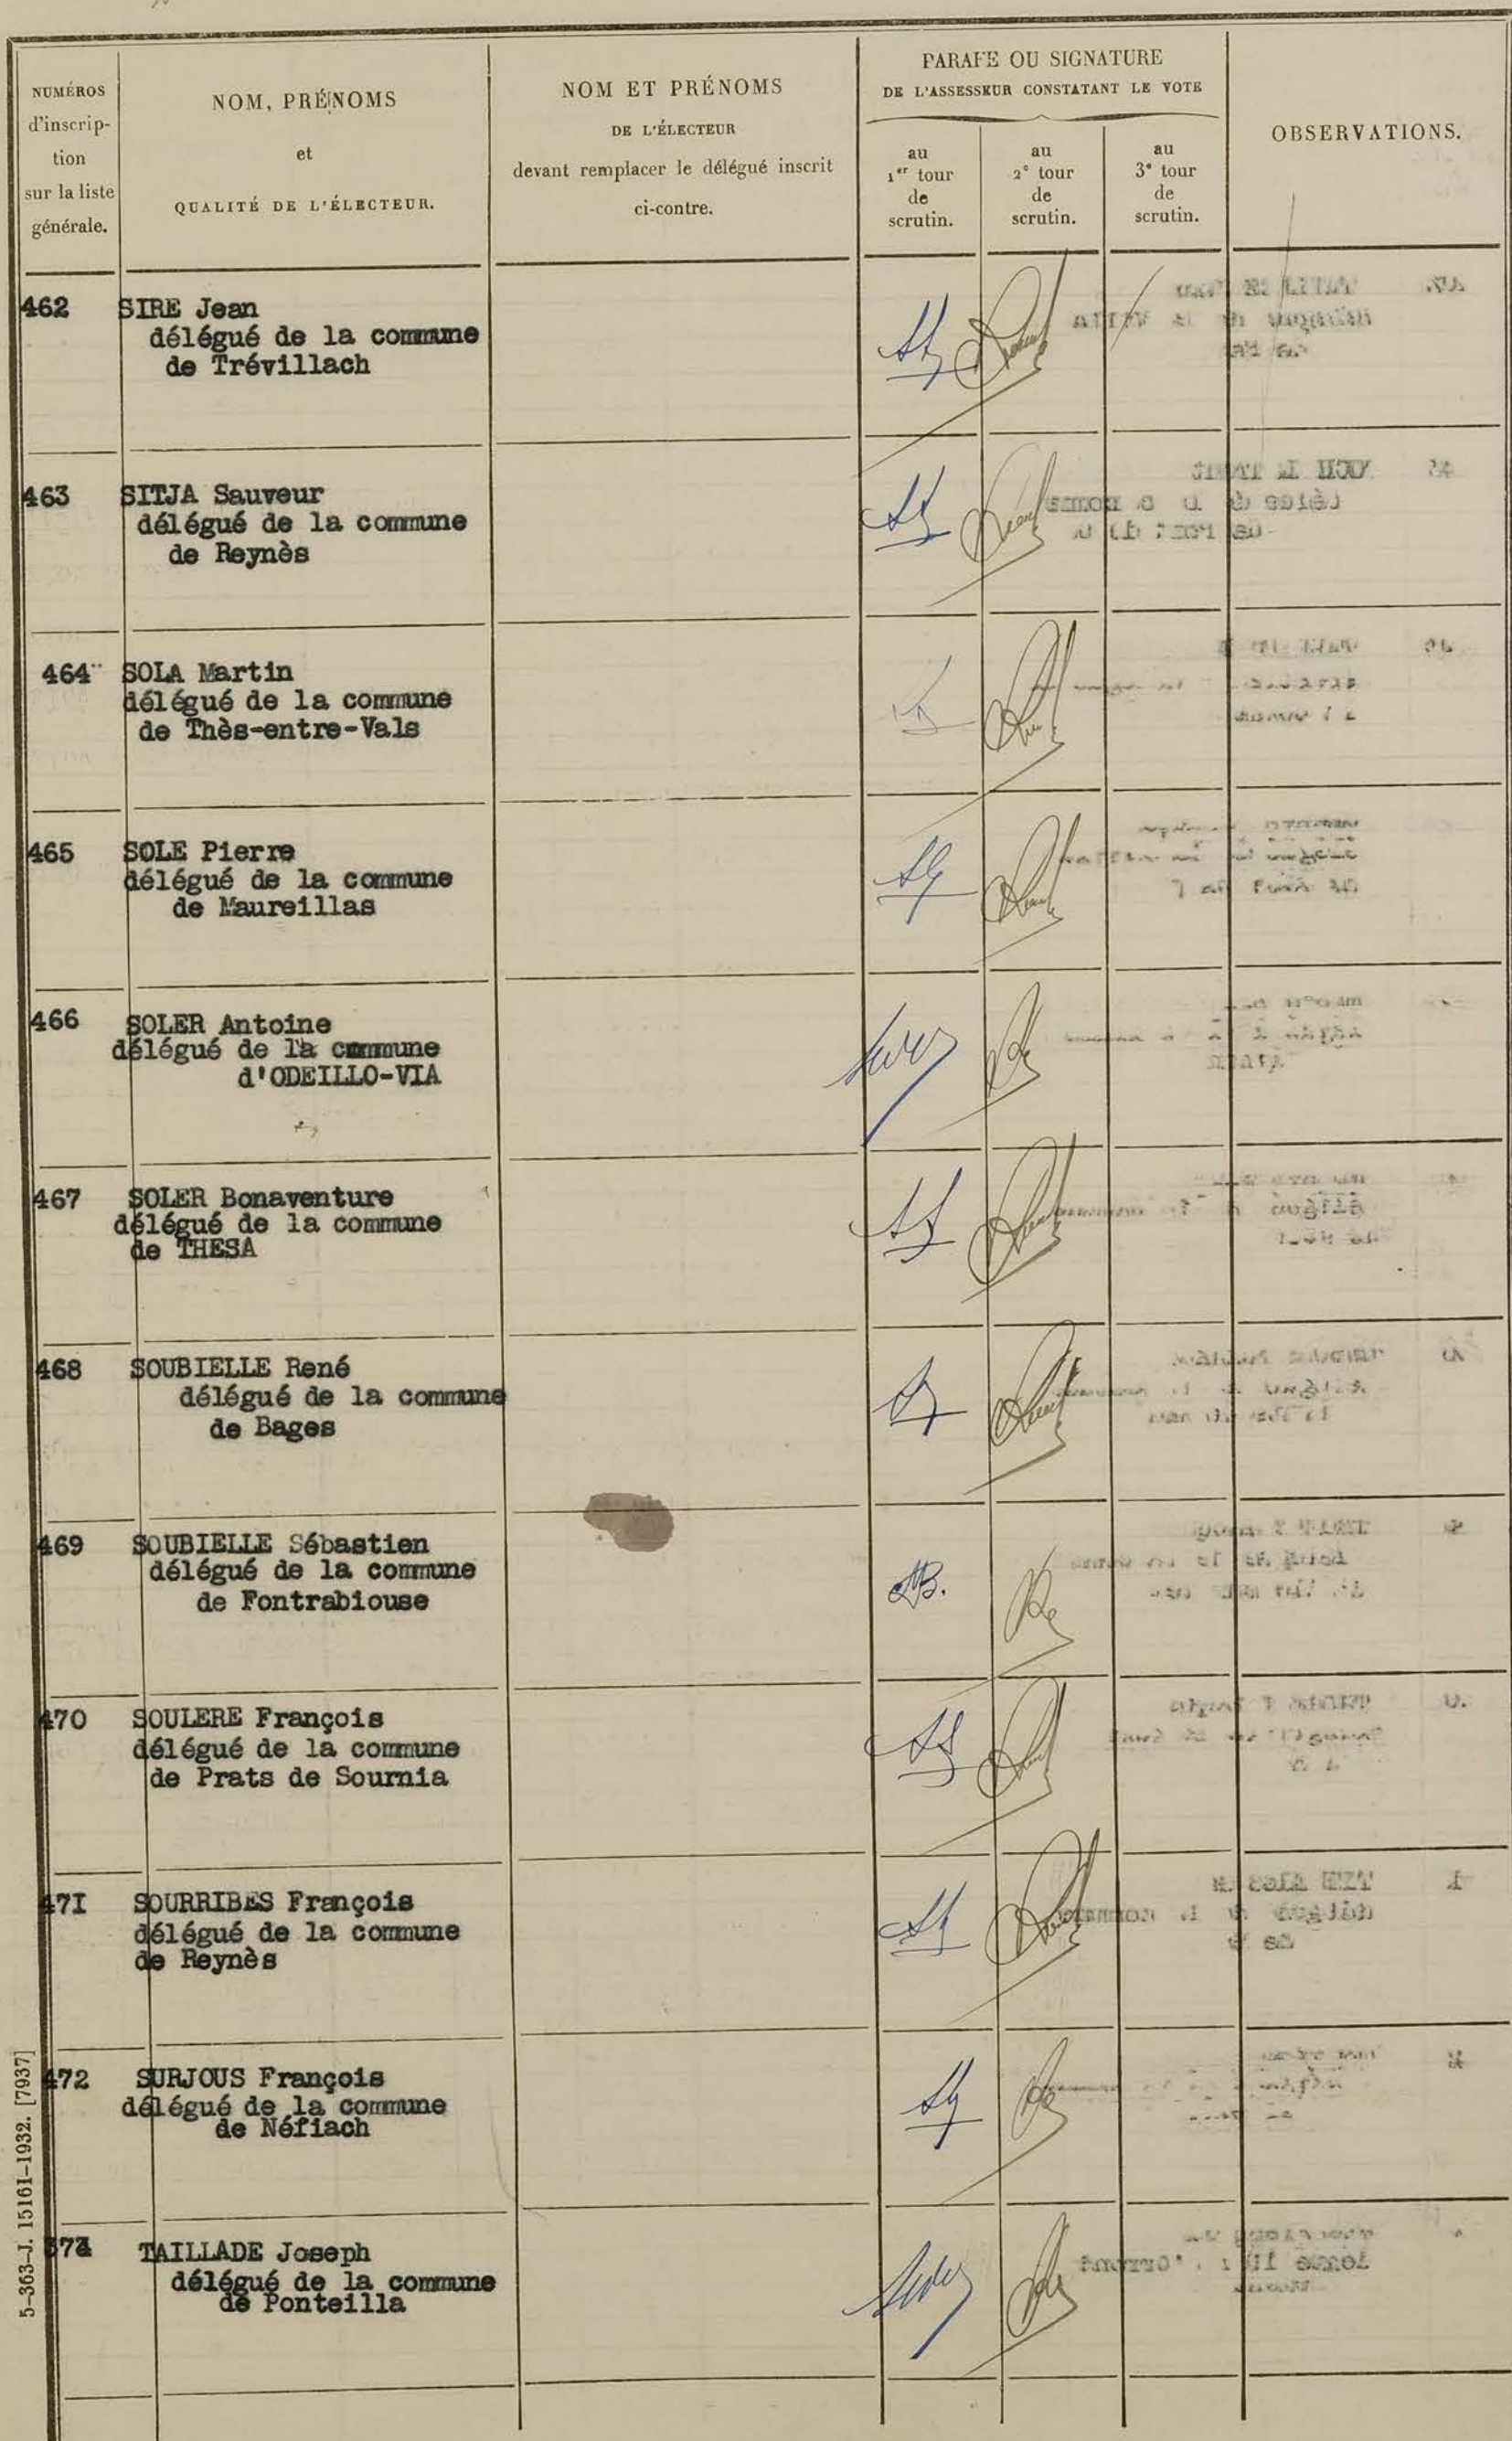 NUMÉROS
d'inscrip-
tion
sur la liste
générale.
NOM, PRÉNOMS
et
QUALITÉ DE L'ÉLECTEUR.
NOM ET PRÉNOMS
DE L'ÉLECTEUR
devant remplacer le délégué inscrit
ci-contre.
PARAFE OU SIGNATURE
DE L'ASSESSEUR CONSTATANT LE VOTE
au
1er tour
de
scrutin.
au
2e tour
de
scrutin.
au
3e tour
de
scrutin.
OBSERVATIONS.
462 SIRE Jean
délégué de la commune
de Trévillach
463 SITJA Sauveur
délégué de la commune
de Reynès
464 SOLA Martin
délégué de la commune
de Thès-entre-Vals
465 SOLE Pierre
délégué de la commune
de Maureillas
466 SOLER Antoine
délégué de la commune
d'ODEILLO-VIA
467 SOLER Bonaventure
délégué de la commune
de THESA
468 SOUBIELLE René
délégué de la commune
de Bages
469 SOUBIELLE Sébastien
délégué de la commune
de Fontrabiouse
470 SOULERE François
délégué de la commune
de Prats de Sournia
47I SOURRIBES François
délégué de la commune
de Reynès
472 SURJOUS François
délégué de la commune
de Néfiach
TAILLADE Joseph
délégué de la commune
de Ponteilla
5-363-J. 15161-1932. [7937]